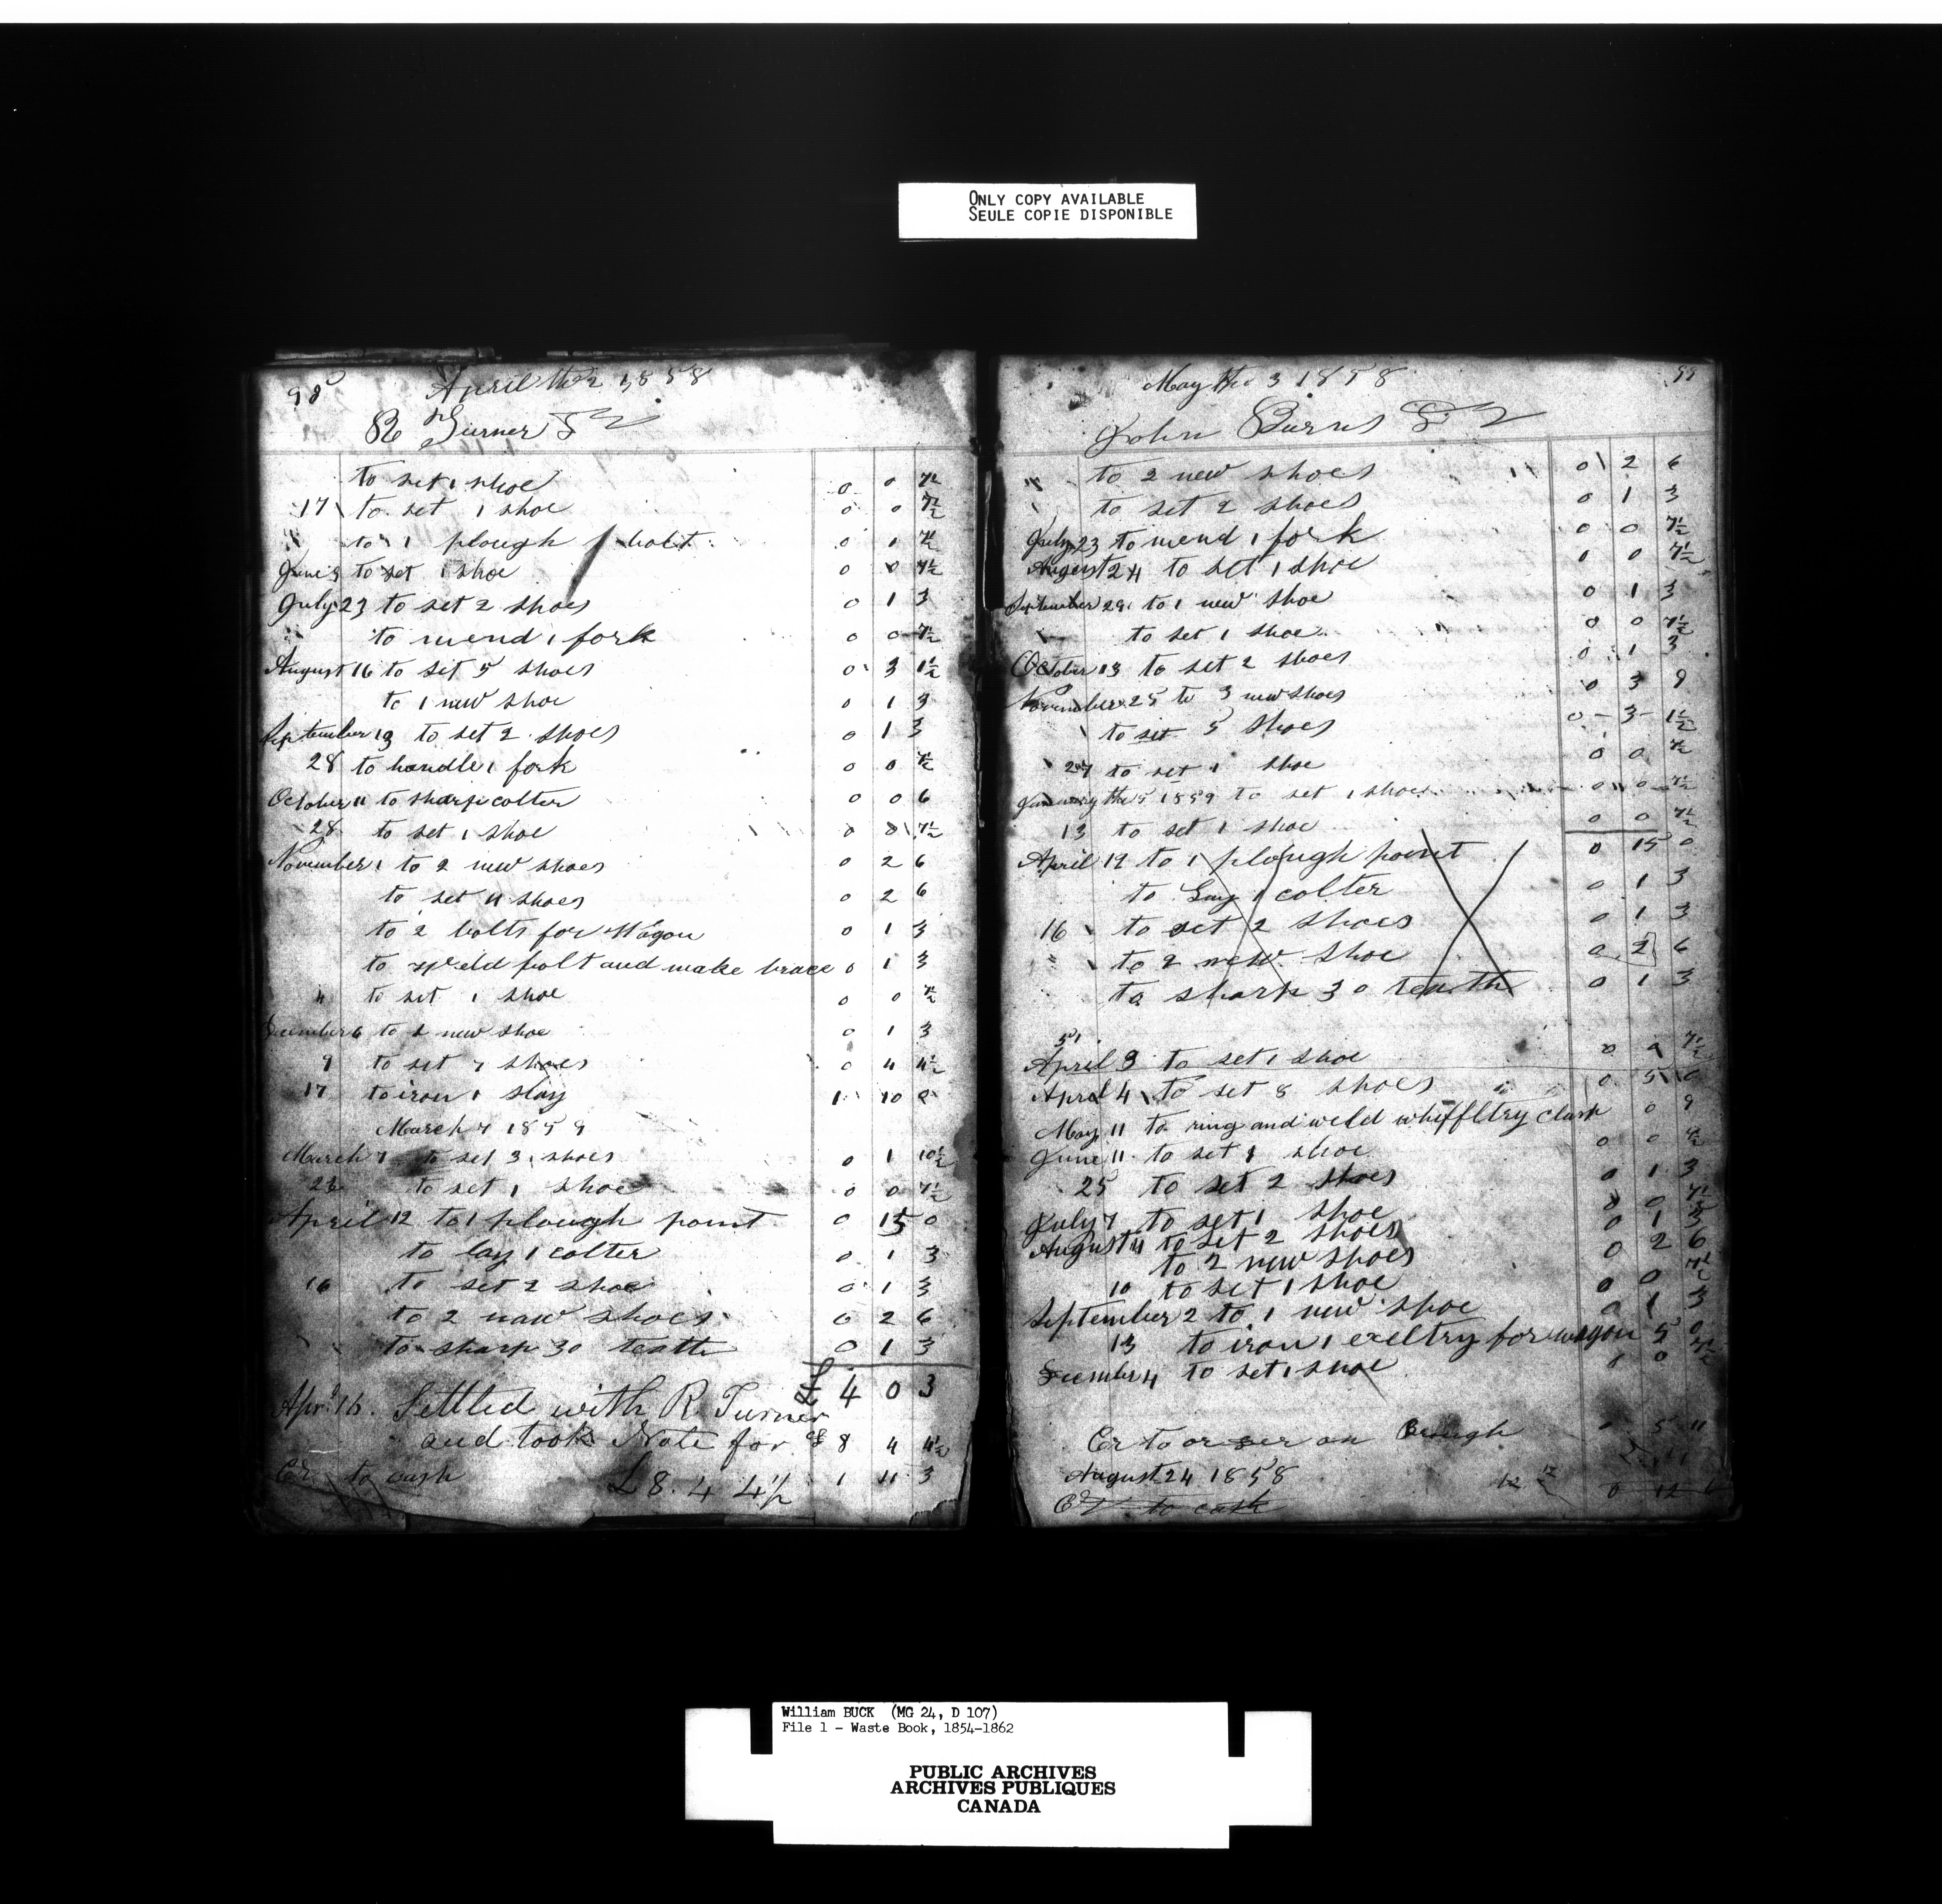 ONLY COPY AVAILABLE
SEULE COPIE DISPONIBLE
98 April the 2 1858
R Turner
to set 1 shoe 0 0 7½
17 to set 1 shoe 0 0 7½
" to 1 plough bolt 0 1
June 9 to set 1 shoe 0 0 7½
July 23 to set 2 shoes 0 1 3
" to mend 1 fork 0 0 7½
August 16 to set 5 shoes 0 3 1½
to 1 new shoe 0 1 3
September 13 to set 2 shoes 0 1 3
28 to handle 1 fork 0 0 7½
October 11 to sharp colter 0 0 6
28 to set 1 shoe 0 0 7½
November 1 to 2 new shoes 0 2 6
to set 4 shoes 0 2 6
to 2 bolts for Wagon 0 1 3
to weld bolt and make brace 0 1 3
4 to set 1 shoe 0 0 7½
December 6 to 1 new shoe 0 1 3
9 to set 7 shoes 0 4 4½
17 to iron 1 slay 1 10 0
March 7 1859
March 7 to set 3 shoes 0 1 10½
23 to set 1 shoe 0 0 7½
April 12 to 1 plough point 0 15 0
to lay 1 colter 0 1 3
16 to set 2 shoe 0 1 3
to 2 naw shoes 0 2 6
to sharp 30 teatth 0 1 3
£ 4 0 3
Apr. 16. Settled with R. Turner
and took Note for £ 8 4 4½
Cr to cash £8. 4 4½ 1 11 3
May the 3 1858 99
John Burns
" to 2 new shoes 0 2 6
to set 2 shoes 0 1 3
July 23 to mend 1 fork 0 0 7½
August 24 to set 1 shoe 0 0 7½
September 29 to 1 new shoe 0 1 3
to set 1 shoe 0 0 7½
October 13 to set 2 shoes 0 1 3
November 25 to 3 new shoes 0 3 9
to set 5 shoes 0 - 3 - 1½
27 to set 1 shoe 0 0 7½
January the 5 1859 to set 1 shoe 0 0 7½
13 to set 1 shoe 0 0 7½
April 12 to 1 plough point 0 15 0
to Lay 1 colter 0 1 3
16 to set 2 shoes 0 1 3
" to 2 new shoe 0 2 6
to shark 30 teatth 0 1 3
April 3 to set 1 shoe 0 0 7½
April 4 to set 8 shoes 0 5 0
May 11 to ring and weld whiffltry clasp 0 9
June 11 to set 1 shoe 0 0 7½
25 to set 2 shoes 0 1 3
July 7 to set 1 shoe 0 0 7½
August 4 to set 2 shoes 0 1 3
to 2 new shoes 0 2 6
10 to set 1 shoe 0 0 7½
September 2 to 1 new shoe 0 1 3
13 to iron 1 exeltry for wagon 5 0
December 4 to set 1 shoe 0 0 7½
Cr to on 0 5 11
August 24 1858
Cr to cash 0 12
William BUCK (MG 24, D 107)
File 1 - Waste Book, 1854-1862
PUBLIC ARCHIVES
ARCHIVES PUBLIQUES
CANADA